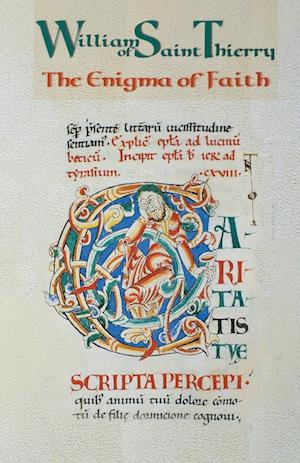 William of Saint Thierry
The Enigma of Faith
sēp p̄sente litterarū uicissitudine
sentiam. Explic̄ epl̄a ad luciniū
beticū. Incipit epl̄a b̄ ier̄ ad
tyrasium. ·cxviii·
C
A-
RI-
TA-
TIS
TVE
SCRIPTA PERCEPI·
quib' animū tuū dolore cōmo-
tū de filię dormicione cognoui.